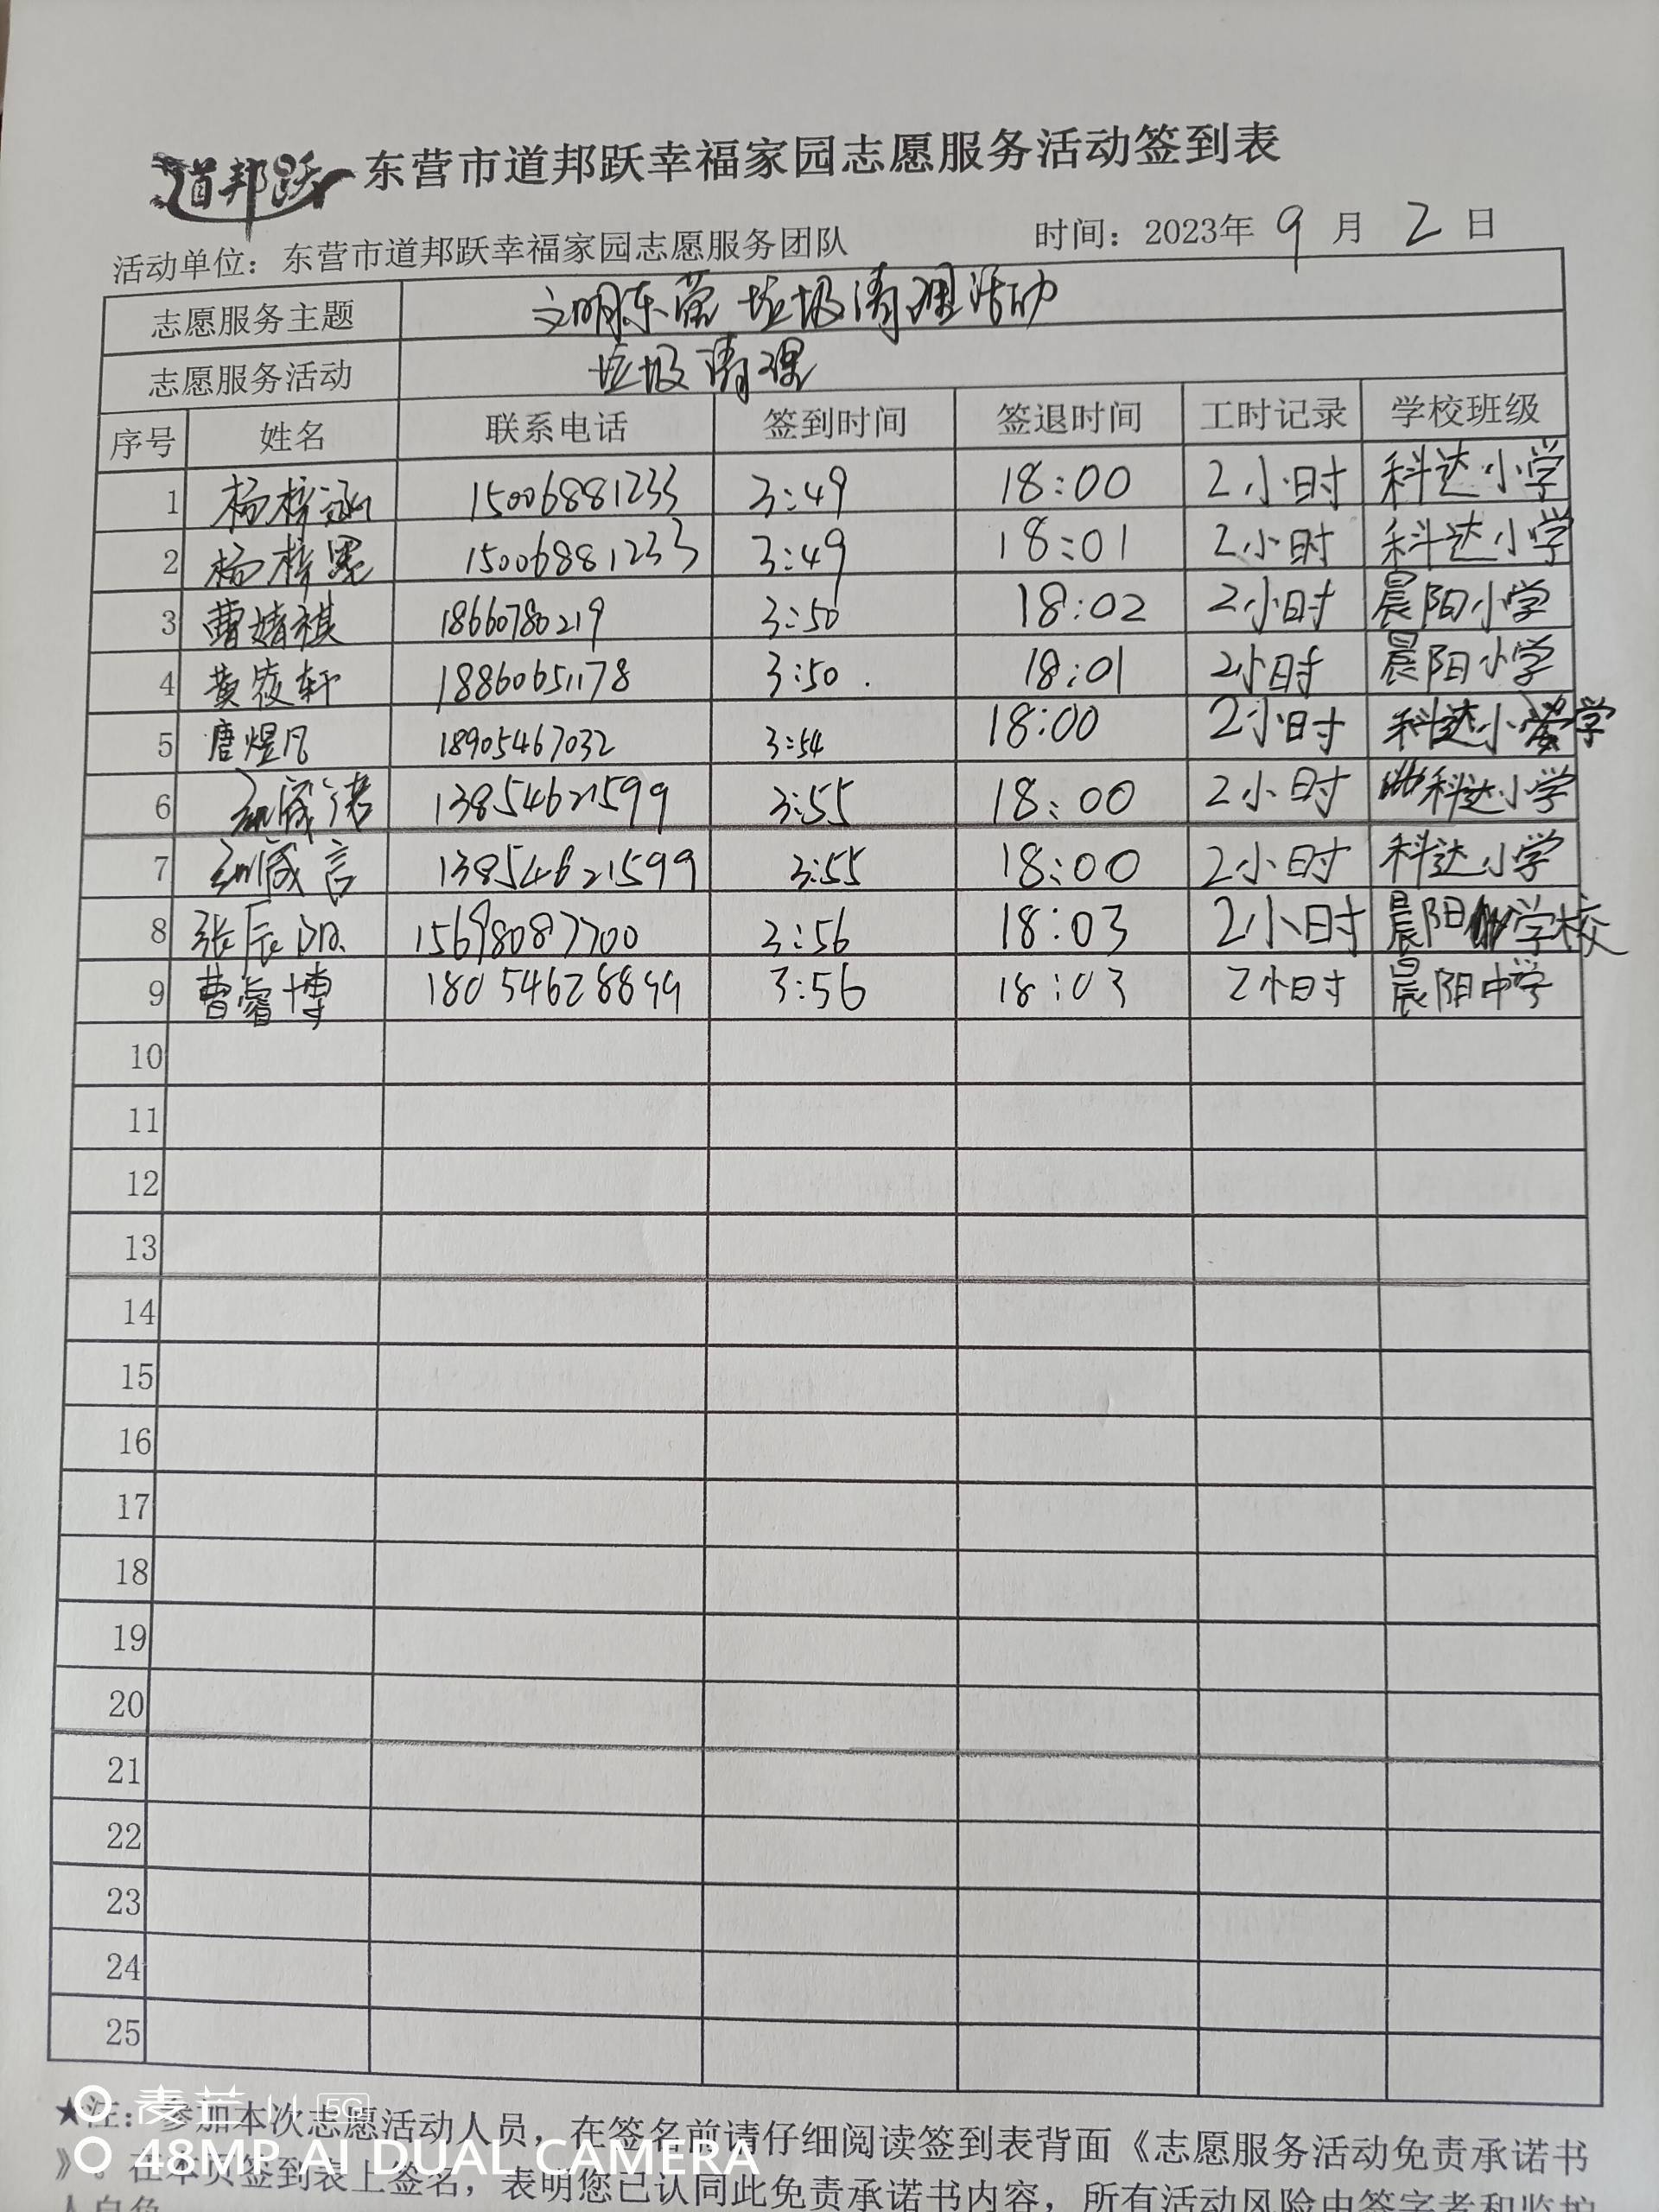 道邦跃 东营市道邦跃幸福家园志愿服务活动签到表
活动单位：东营市道邦跃幸福家园志愿服务团队 时间：2023年 9 月 2 日
志愿服务主题 文明东营 垃圾清理活动
志愿服务活动 垃圾清理
序号 姓名 联系电话 签到时间 签退时间 工时记录 学校班级
1 杨梓涵 15006881233 3:49 18:00 2小时 科达小学
2 杨梓墨 15006881233 3:49 18:01 2小时 科达小学
3 曹婧祺 18660780219 3:50 18:02 2小时 晨阳小学
4 黄筱轩 18860651178 3:50 18:01 2小时 晨阳小学
5 唐煜凡 18905467032 3:54 18:00 2小时 科达小学
6 13854621599 3:55 18:00 2小时 科达小学
7 13854621599 3:55 18:00 2小时 科达小学
8 张辰 15698087700 3:56 18:03 2小时 晨阳学校
9 曹睿博 18054628899 3:56 18:03 2小时 晨阳中学
10
11
12
13
14
15
16
17
18
19
20
21
22
23
24
25
★注：参加本次志愿活动人员，在签名前请仔细阅读签到表背面《志愿服务活动免责承诺书
》。在本页签到表上签名，表明您已认同此免责承诺书内容，所有活动风险由签字者和监护
人自负
麦芒 11 5G
48MP AI DUAL CAMERA